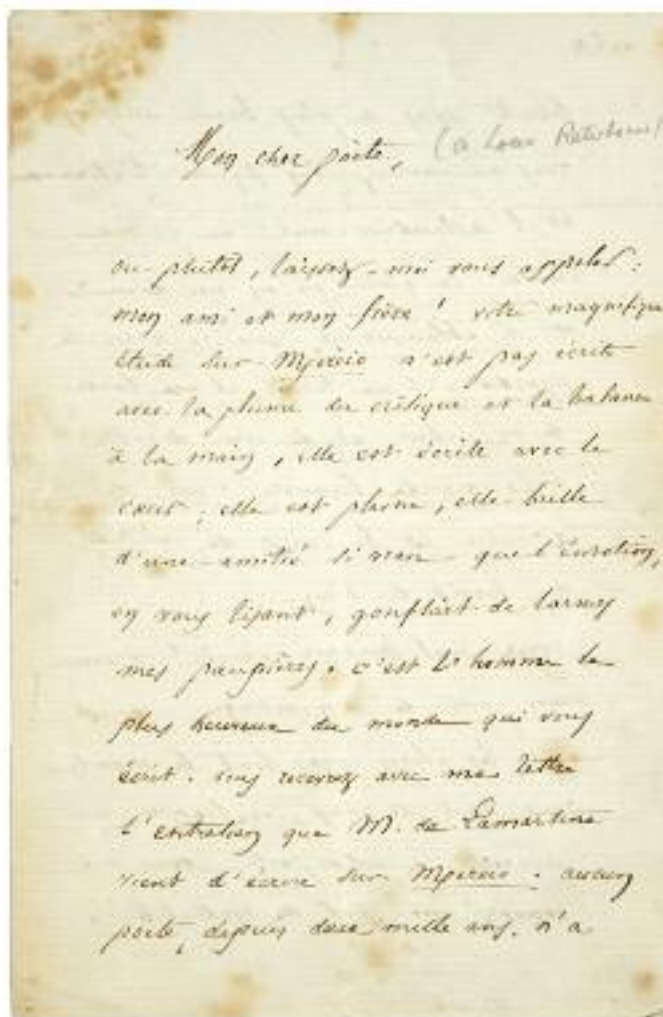 Mon cher poète, (à Louis Ratisbonne)
ou plutôt, laissez-moi vous appeler :
mon ami et mon frère ! votre magnifique
étude sur Mirèio n'est pas écrite
avec la plume du critique et la balance
à la main, elle est écrite avec le
cœur ; elle est pleine, elle brille
d'une amitié si vraie que l'émotion,
en vous lisant, gonflait de larmes
mes paupières. c'est l'homme le
plus heureux du monde qui vous
écrit. vous recevrez avec ma lettre
l'entretien que M. de Lamartine
vient d'écrire sur Mirèio. aucun
poète, depuis deux mille ans, n'a